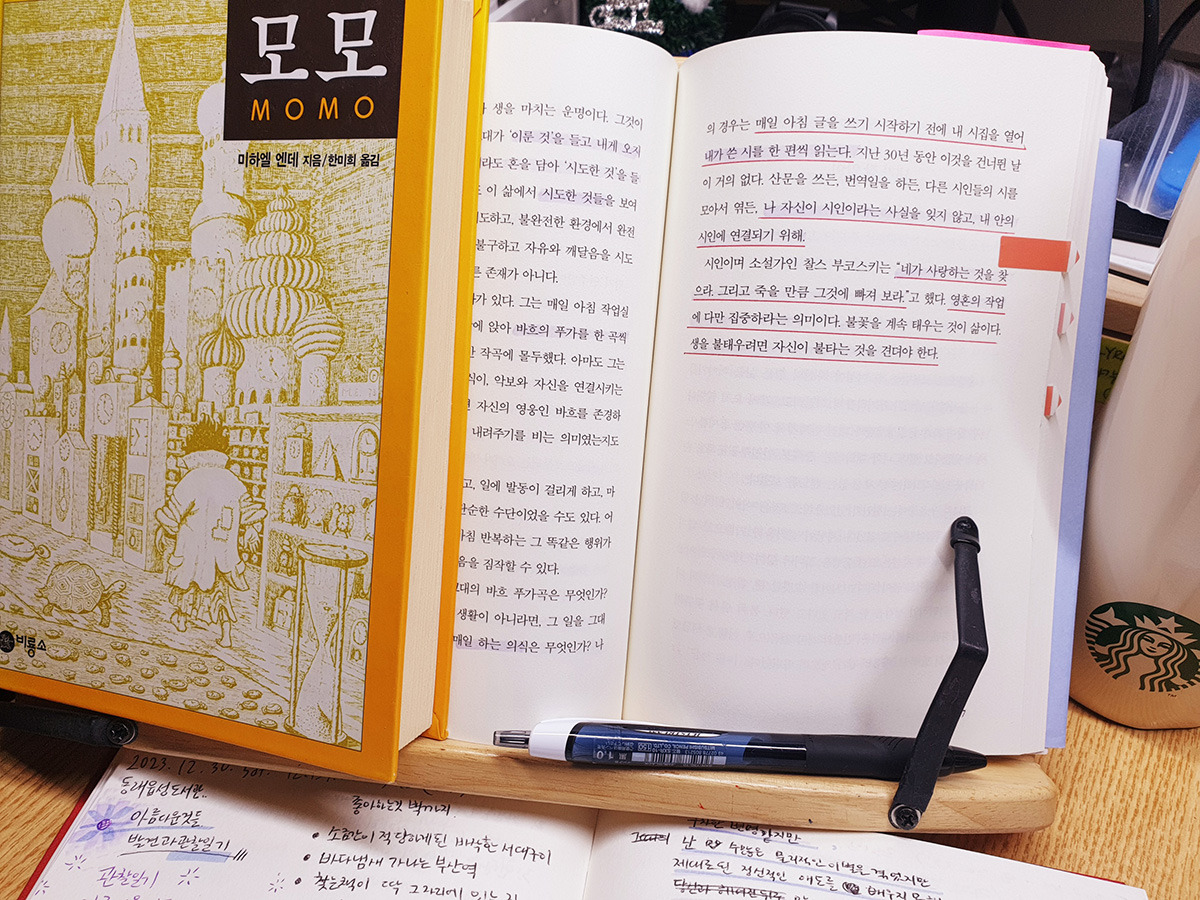 모모
MOMO
미하엘 엔데 지음/한미희 옮김
비룡소
생을 마치는 운명이다. 그것이
대가 '이룬 것'을 들고 내게 오지
라도 혼을 담아 '시도한 것'을 들
이 삶에서 시도한 것들을 보여
도하고, 불완전한 환경에서 완전
불구하고 자유와 깨달음을 시도
존재가 아니다.
가 있다. 그는 매일 아침 작업실
에 앉아 바흐의 푸가를 한 곡씩
작곡에 몰두했다. 아마도 그는
식이, 악보와 자신을 연결시키는
자신의 영웅인 바흐를 존경하
내려주기를 비는 의미였는지도
고, 일에 발동이 걸리게 하고, 마
단순한 수단이었을 수도 있다. 어
아침 반복하는 그 똑같은 행위가
음을 짐작할 수 있다.
그대의 바흐 푸가곡은 무엇인가?
생활이 아니라면, 그 일을 그대
매일 하는 의식은 무엇인가? 나
의 경우는 매일 아침 글을 쓰기 시작하기 전에 내 시집을 열어
내가 쓴 시를 한 편씩 읽는다. 지난 30년 동안 이것을 건너뛴 날
이 거의 없다. 산문을 쓰든, 번역일을 하든, 다른 시인들의 시를
모아서 엮든, 나 자신이 시인이라는 사실을 잊지 않고, 내 안의
시인에 연결되기 위해.
시인이며 소설가인 찰스 부코스키는 "네가 사랑하는 것을 찾
으라. 그리고 죽을 만큼 그것에 빠져 보라."고 했다. 영혼의 작업
에 다만 집중하라는 의미이다. 불꽃을 계속 태우는 것이 삶이다.
생을 불태우려면 자신이 불타는 것을 견뎌야 한다.
2023. 12. 30.
동래읍성도서관..
아름다운것들
발견과관찰일기
관찰일기
좋아하는것
• 소금간이 적당하게된 바삭한 서대구이
• 바다냄새 가나는 부산역
그대의 난
제대로된 정선적인 애도를 배우지